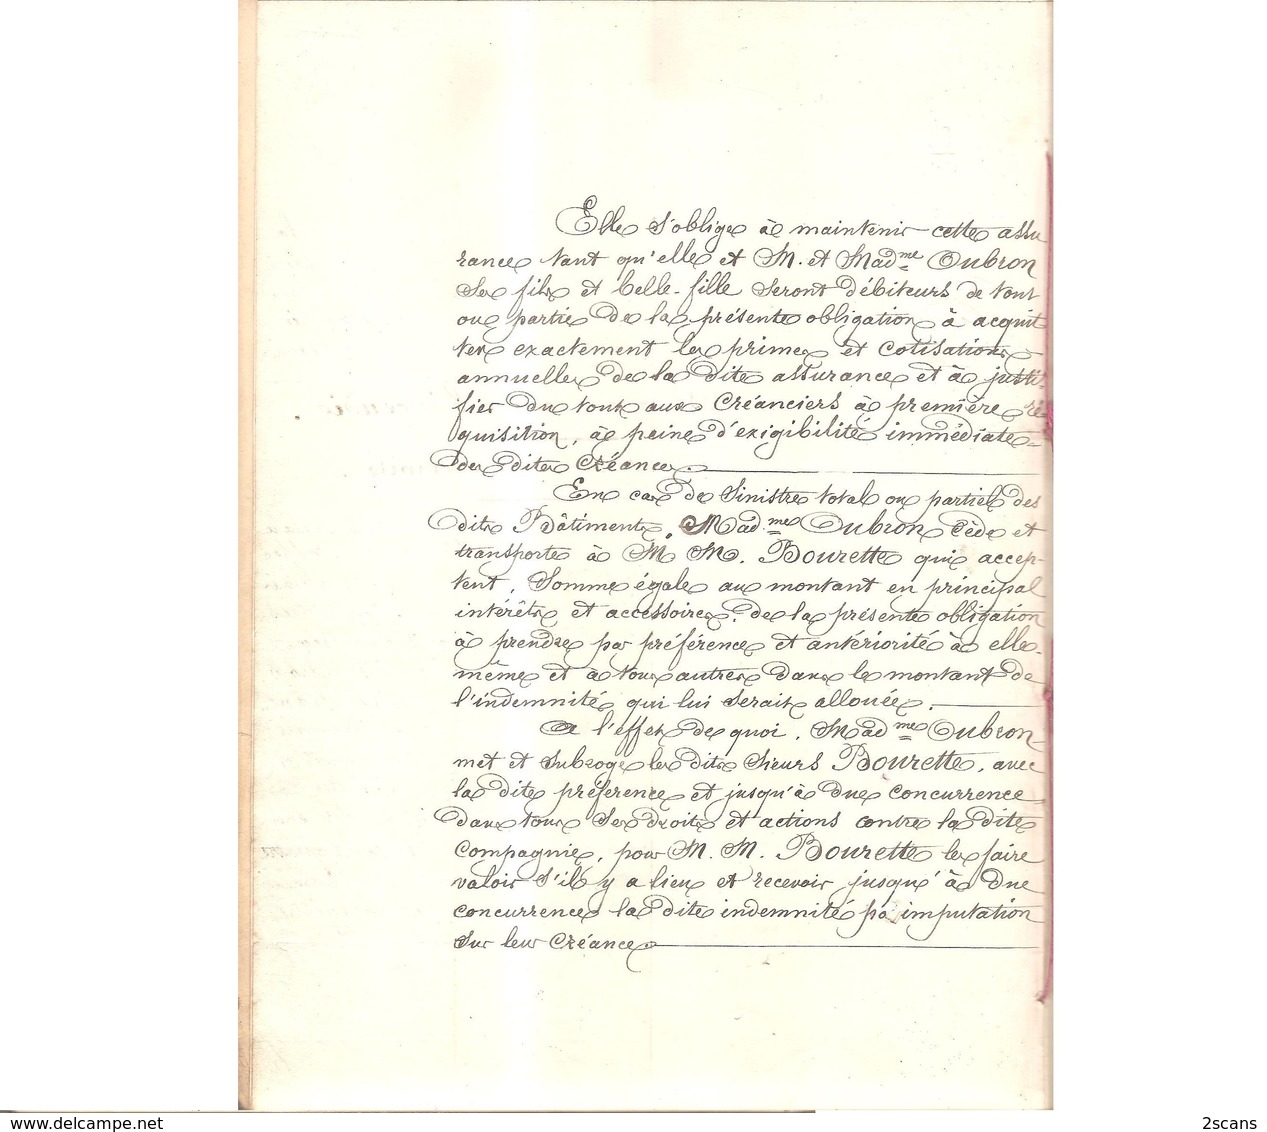 Elle s'oblige à maintenir cette assu
rance tant qu'elle et M. et Mad.me Oubron
ses fils et belle-fille seront débiteurs de tout
ou partie de la présente obligation à acquit
ter exactement les primes et cotisations
annuelles de la dite assurance et à justi-
fier du tout aux Créanciers à première ré
quisition, à peine d'exigibilité immédiate
des dites Créances.
En cas de Sinistre total ou partiel des
dits Bâtiments, Mad.me Oubron cède et
transporte à M. M. Bourette qui accep-
tent, Somme égale au montant en principal
intérêts et accessoires de la présente obligation
à prendre par préférence et antériorité à elle-
même et à tous autres dans le montant de
l'indemnité qui lui serait allouée.
A l'effet de quoi, Mad.me Oubron
met et subroge les dits Sieurs Bourette, avec
la dite préférence et jusqu'à due concurrence
dans tous ses droits et actions contre la dite
Compagnie, pour M. M. Bourette les faire
valoir s'il y a lieu et recevoir jusqu'à due
concurrence la dite indemnité par imputation
sur leur Créance.
www.delcampe.net
2scans